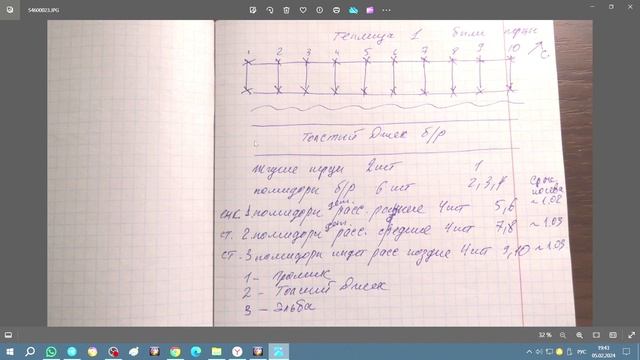 54600023.JPG
Теплица 1 были перцы
1 2 3 4 5 6 7 8 9 10 С
Толстый Джек б/р
жгучие перцы 2 шт 1
помидоры б/р 6 шт 2, 3, 4
Срок посева
1. помидоры дет. расс. ранние 4 шт 5, 6 ~ 1.02
ст. 2. помидоры дет. расс. средние 4 шт 7, 8 ~ 1.03
ст. 3 помидоры индет расс поздние 4 шт 9, 10 ~ 1.03
1 -
2 - Толстый Джек
3 - Эльба
32 %
РУС
19:43
05.02.2024